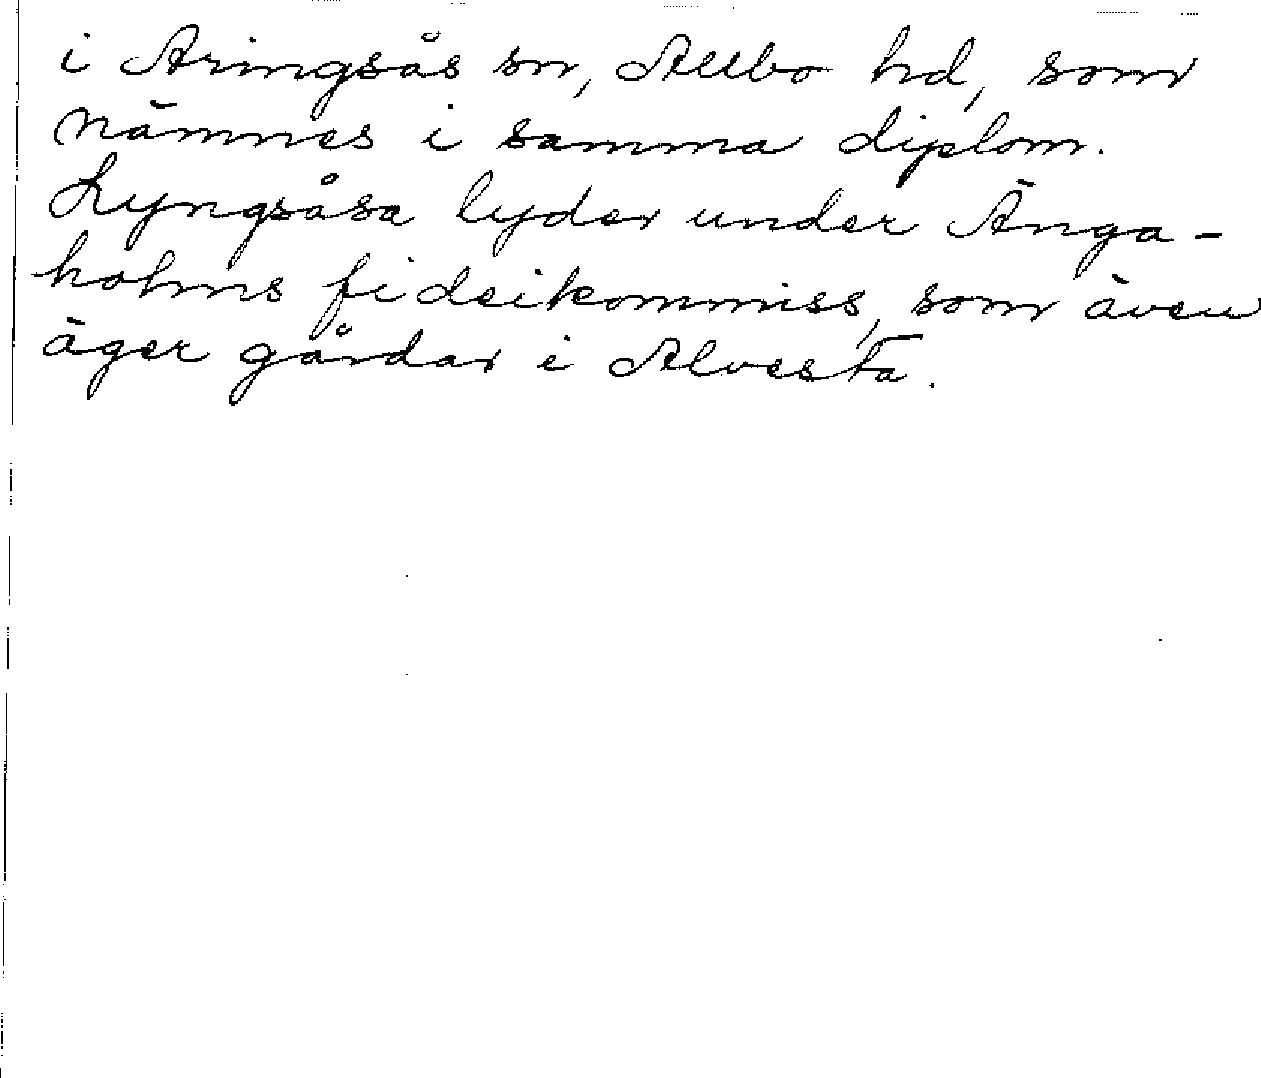 i Aringsås sn, Allbo hd, som
nämnes i samma diplom.
Lyngsåsa lyder under Änga-
holms fideikommiss, som även
äger gårdar i Alvesta.